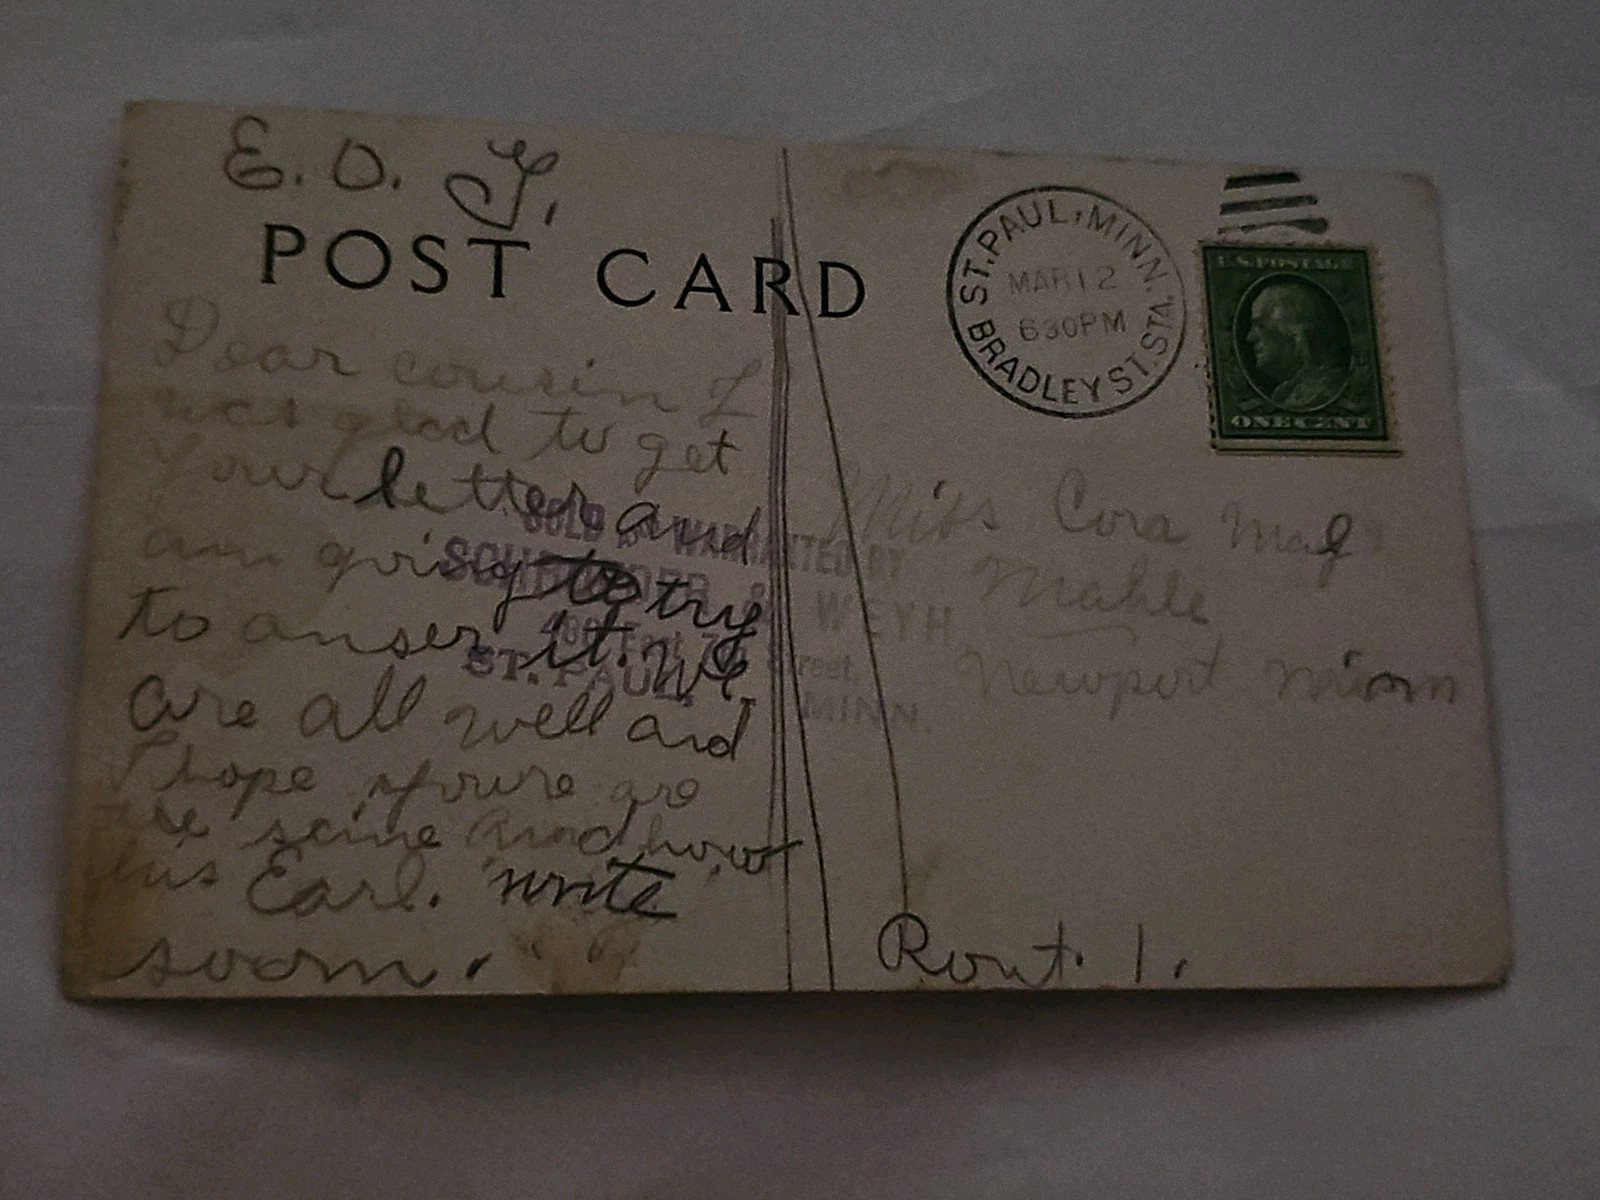 E. O. T.
POST CARD
Dear cousin I
was glad to get
Your letter and
am going to try
to anser it. We
are all well and
I hope youre are
the same and how
is Earl. write
soon.
ST. PAUL, MINN.
BRADLEY ST. STA.
MAR 12
630PM
U.S. POSTAGE
ONE CENT
SOLD & WARRANTED BY
& WEYH
East 7th Street,
ST. PAUL, MINN.
Miss Cora
Mahle
Newport Minn
Rout. 1.